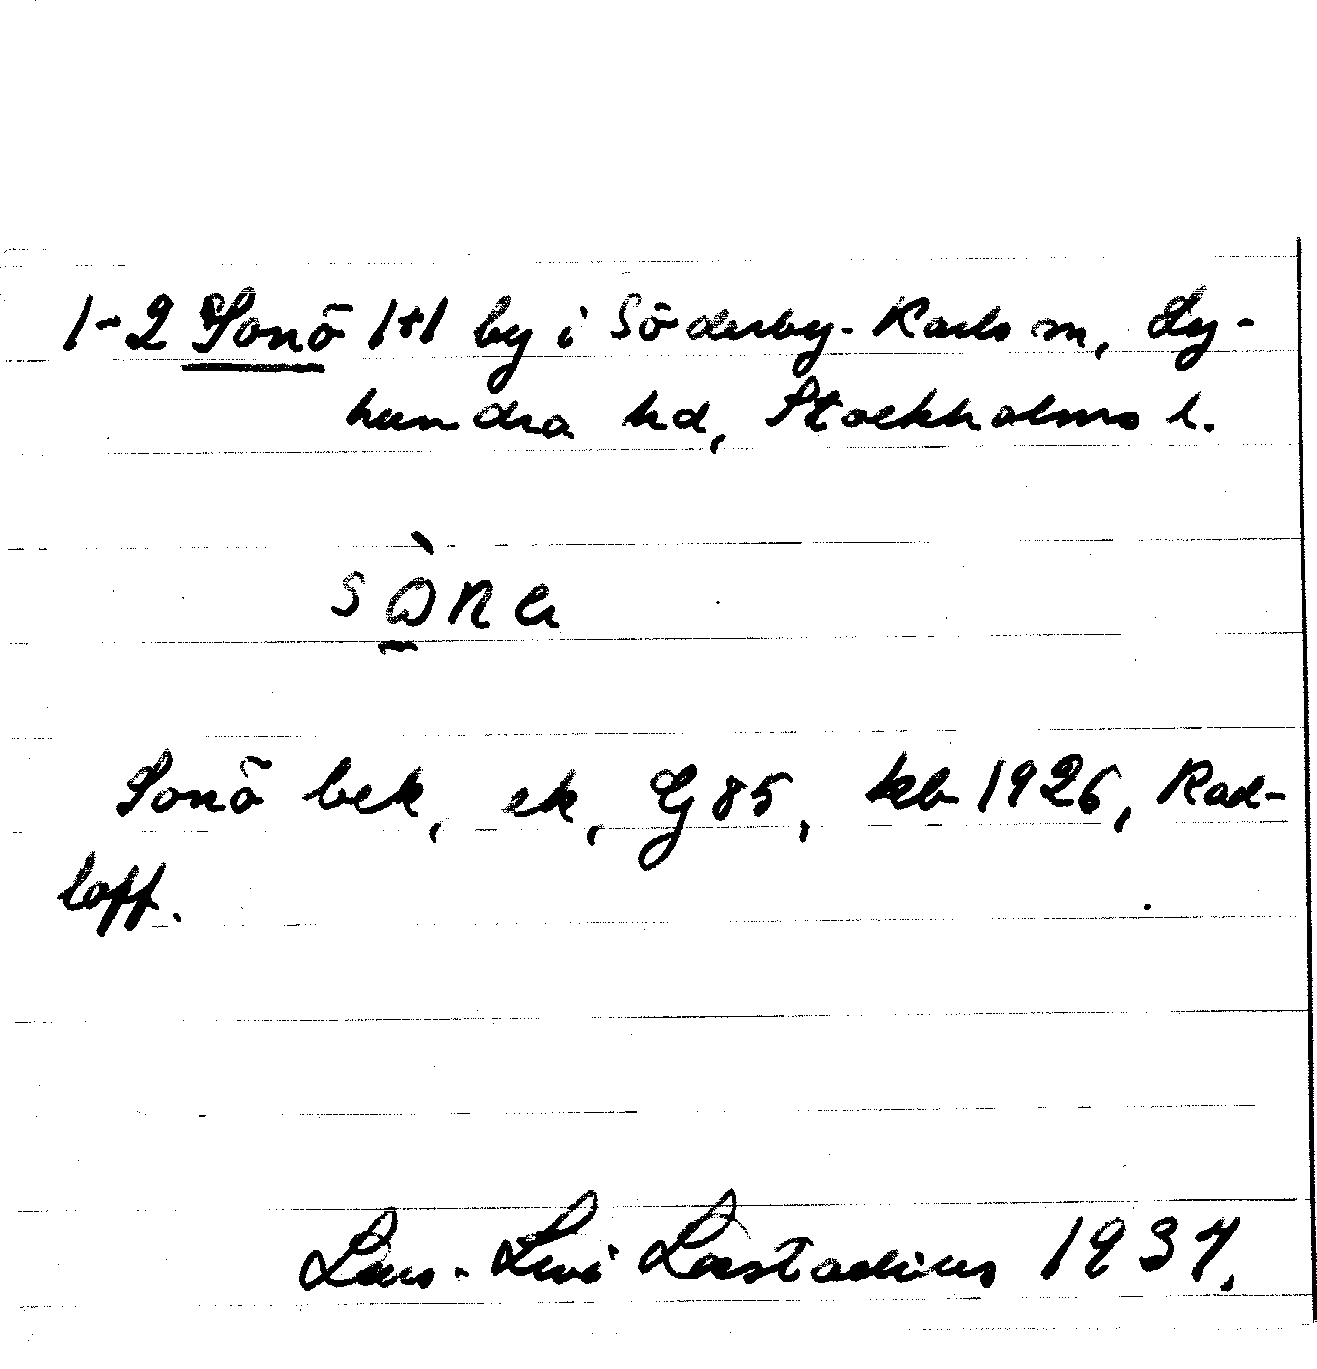 1-2 Sonö 1+1 by i Söderby-Karls sn, Ly-
hundra hd, Stockholms l.
Sonö bek, ek, Gj 85, kb 1926, Rad-
loff.
Lars-Levi Læstadius 1937.